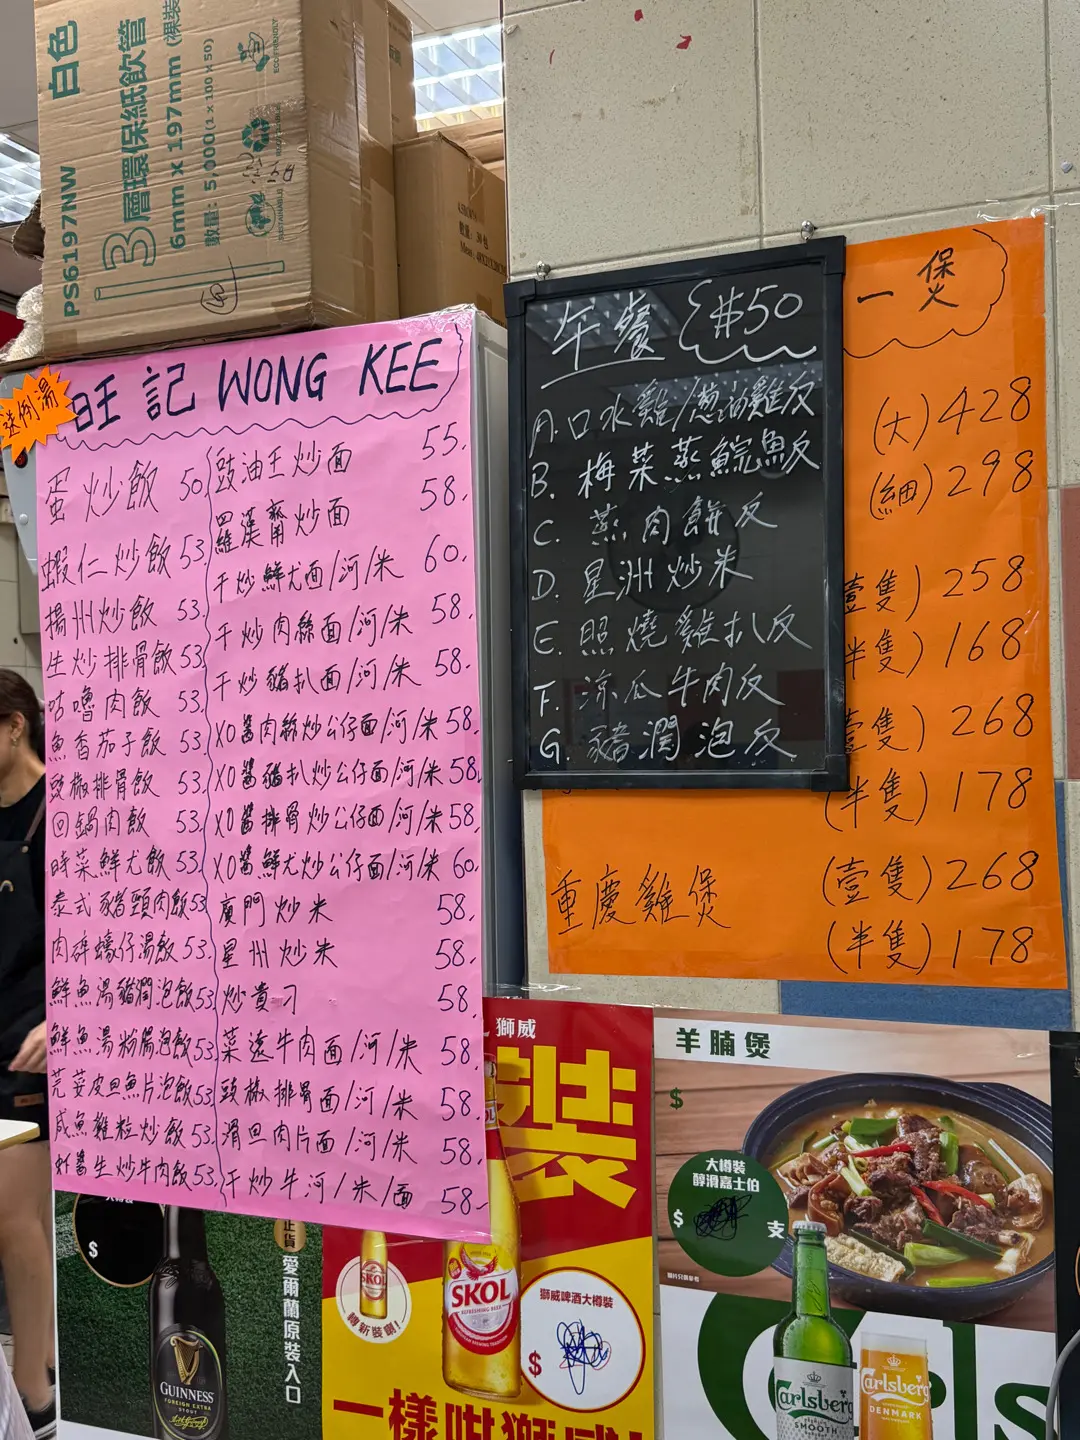 白色
PS6197NW
3層環保紙飲管
6mm x 197mm (裸裝
數量: 5,000 (2 x 100 x 50)
ECO FRIENDLY
送例湯
旺記 WONG KEE
蛋炒飯 50
蝦仁炒飯 53.
揚州炒飯 53.
生炒排骨飯 53
咕嚕肉飯 53.
魚香茄子飯 53.
豉椒排骨飯 53.
回鍋肉飯 53.
時菜鮮尤飯 53.
泰式豬頸肉飯 53
肉碎蠔仔湯飯 53.
鮮魚湯豬潤泡飯 53.
鮮魚湯粉腸泡飯 53.
芫荽皮旦魚片泡飯 53.
咸魚雞粒炒飯 53.
生炒牛肉飯 53.
豉油王炒面 55.
羅漢齋炒面 58.
干炒鮮尤面/河/米 60.
干炒肉絲面/河/米 58.
干炒豬扒面/河/米 58.
XO醬肉絲炒公仔面/河/米 58.
XO醬豬扒炒公仔面/河/米 58.
XO醬排骨炒公仔面/河/米 58.
XO醬鮮尤炒公仔面/河/米 60.
廈門炒米 58.
星州炒米 58.
炒貴刁 58
菜遠牛肉面/河/米 58
豉椒排骨面/河/米 58.
滑旦肉片面/河/米 58.
干炒牛河/米/面 58.
午餐 $50
A. 口水雞/葱油雞反
B. 梅菜蒸鯇魚反
C. 蒸肉餅反
D. 星洲炒米
E. 照燒雞扒反
F. 凉瓜牛肉反
G. 豬潤泡反
一煲
(大) 428
(細) 298
壹隻) 258
半隻) 168
壹隻) 268
(半隻) 178
重慶雞煲 (壹隻) 268
(半隻) 178
獅威
裝
SKOL
SKOL
轉新裝喇!
獅威啤酒大樽裝
$
$
正貨
愛爾蘭原裝入口
GUINNESS
FOREIGN EXTRA
STOUT
羊腩煲
$
大樽裝
醇滑嘉士伯
$ 支
Carlsberg
SMOOTH
Carlsberg
DENMARK